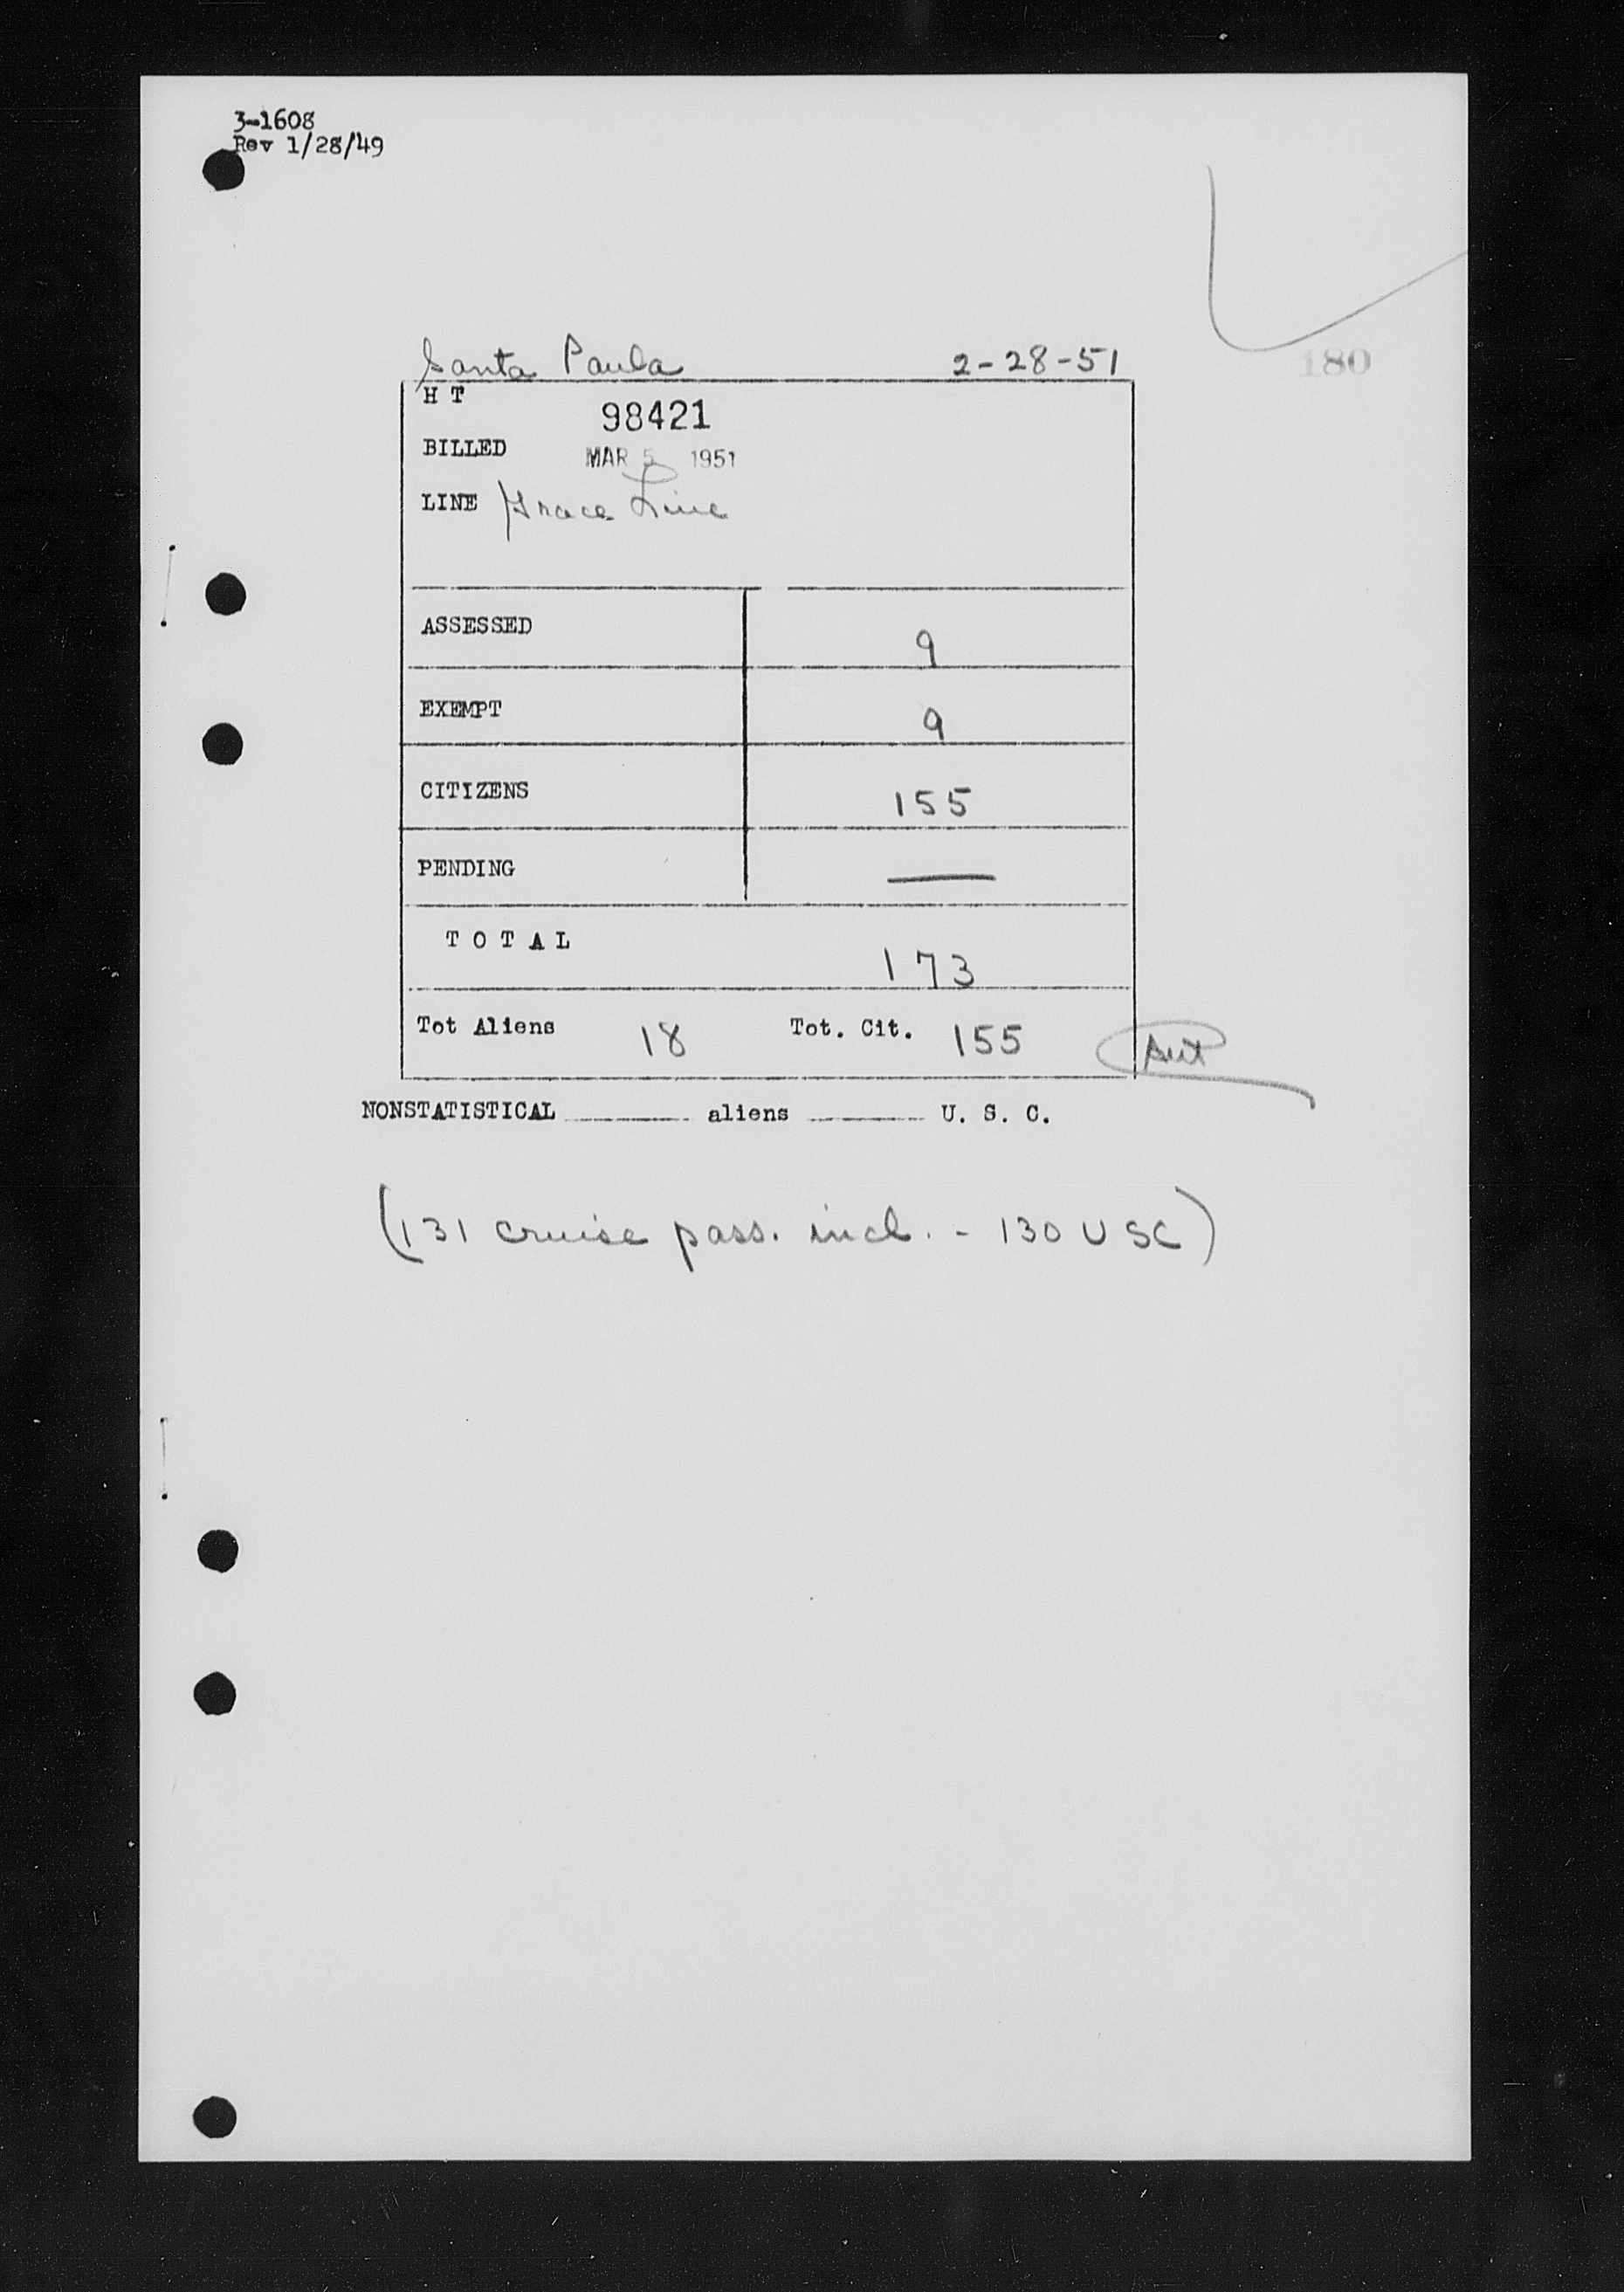 3-1608
Rev 1/28/49
180
Santa Paula 2-28-51
H T 98421
BILLED MAR 5 1951
LINE Grace Line
ASSESSED 9
EXEMPT 9
CITIZENS 155
PENDING —
T O T A L 173
Tot Aliens 18 Tot. Cit. 155
NONSTATISTICAL ________ aliens ________ U. S. C.
(131 cruise pass. incl. - 130 USC)